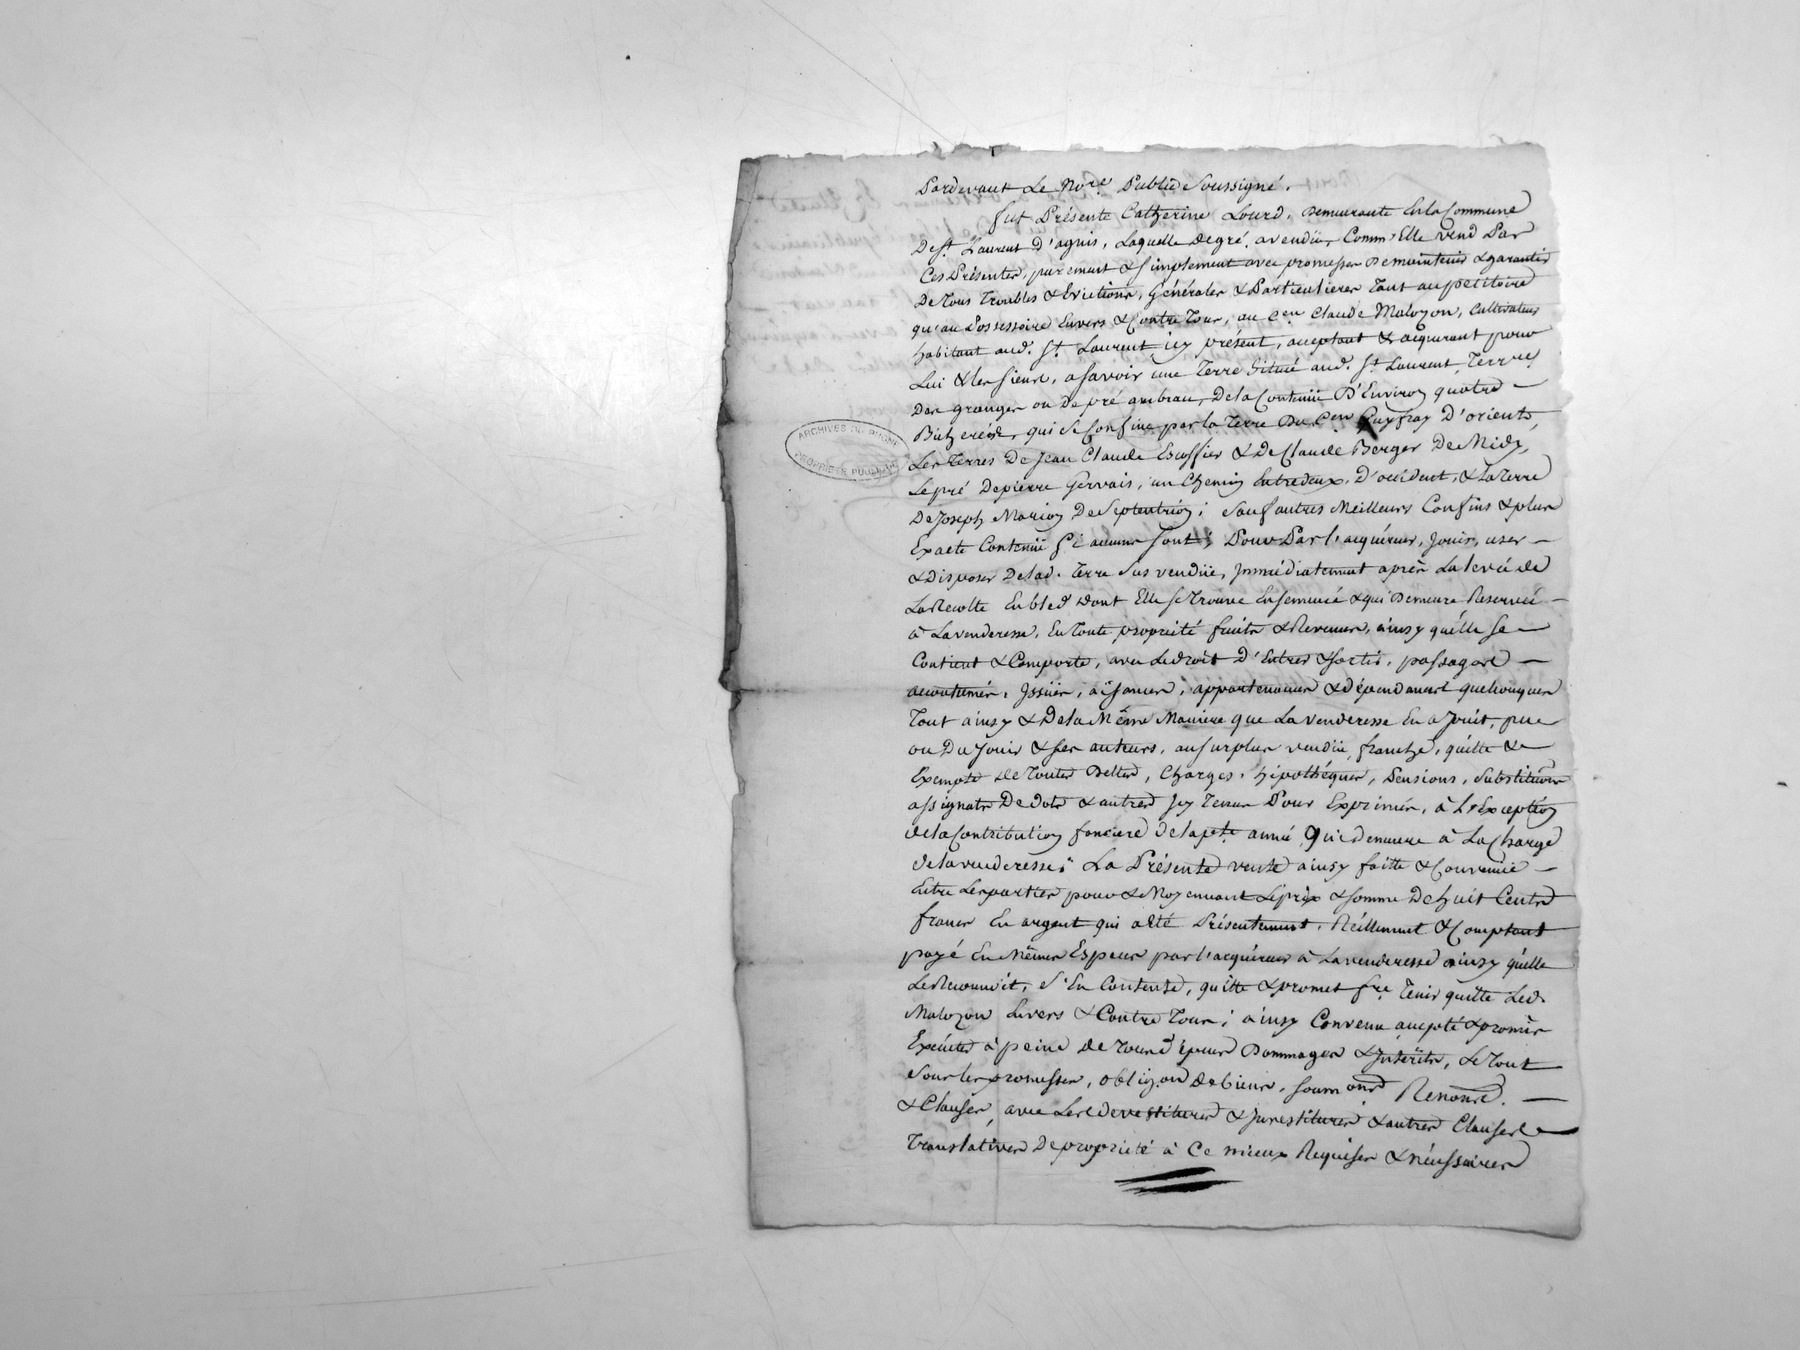 Pardevant Le No.re Public Soussigné.
fut Présente Catherine Lourd, Demeurante En la Commune
De St. Laurent D'agnis, Laquelle de gré, a vendüe, Comm' Elle vend Par
Ces Présentes, purement & simplement avec promesses De maintenir & garantir
De Tous Troubles & Evictions, Générales & Particulieres Tant au petitoire
qu'au Possessoire Envers & Contre Tous, au C.en Claude Malozon, Cultivateur
habitant aud. St. Laurent icy présent, acceptant & acquerant pour
Lui & les siens, a savoir une Terre Située aud. St. Laurent, Terres
Des granges ou De pré ambrau, De la Contenüe D'Environ quatre
Bicherées, qui se Confine par la Terre Du C.en Guyfray D'orient,
Les Terres De Jean Claude Escoffier & De Claude Berger De Midy,
Le pré De pierre Gervais, un Chemin Entredeux, D'occident, & la Terre
De Joseph Marion De Septentrion; Sauf autres Meilleurs Confins & plus
Exacte Contenüe si aucuns sont; Pour Par l'acquéreur, Jouir, user
& Disposer De lad. Terre Sus vendüe, Immédiatement après La levée de
La Recolte En bled dont Elle se Trouve Ensemencé & qui Demeure Reservée
à La venderesse, En Toute propriété fruits & Revenus, ainsy qu'elle se
Contient & Comporte, avec Le droit D'Entrer & sortir, passages
accoutumés, Issües, aisances, appartenances & dépendances quelconques
Tout ainsy & De la Même Maniere que La venderesse En a Jouit, pue
ou Du Jouir & ses auteurs, au surplus vendüe franche, quitte &
Exempte de Toutes Dettes, Charges, hipothéques, Pensions, Substitutions
assignats De dots & autres Icy Tenus Pour Exprimés, à L'Exception
de la Contribution fonciere de la p.te année Qui demeure à La Charge
de la venderesse; La Présente vente ainsy faitte & Convenüe
Entre Les parties pour & Moyennant Le prix & somme De huit Cents
francs En argent qui a Eté Présentement, Réellement & Comptant
payé En Mêmes Especes par l'acquéreur à La venderesse ainsy qu'elle
Le Reconnoit, s'En Contente, quitte & promet f.re Tenir quitte Led.
Malozon Envers & Contre Tous; ainsy Convenu accepté & promis
Exécuter à peine de Tous Dépens Dommages & Intérêts, Le Tout
Sous Les promesses, oblig.on De biens, soum.ons Renon.s
& Clauses, avec Les Devestitures & Investitures & autres Clauses
Translatives De propriété à Ce mieux Requises & nécessaires
ARCHIVES DU RHONE
PROPRIÉTÉ PUBLIQUE